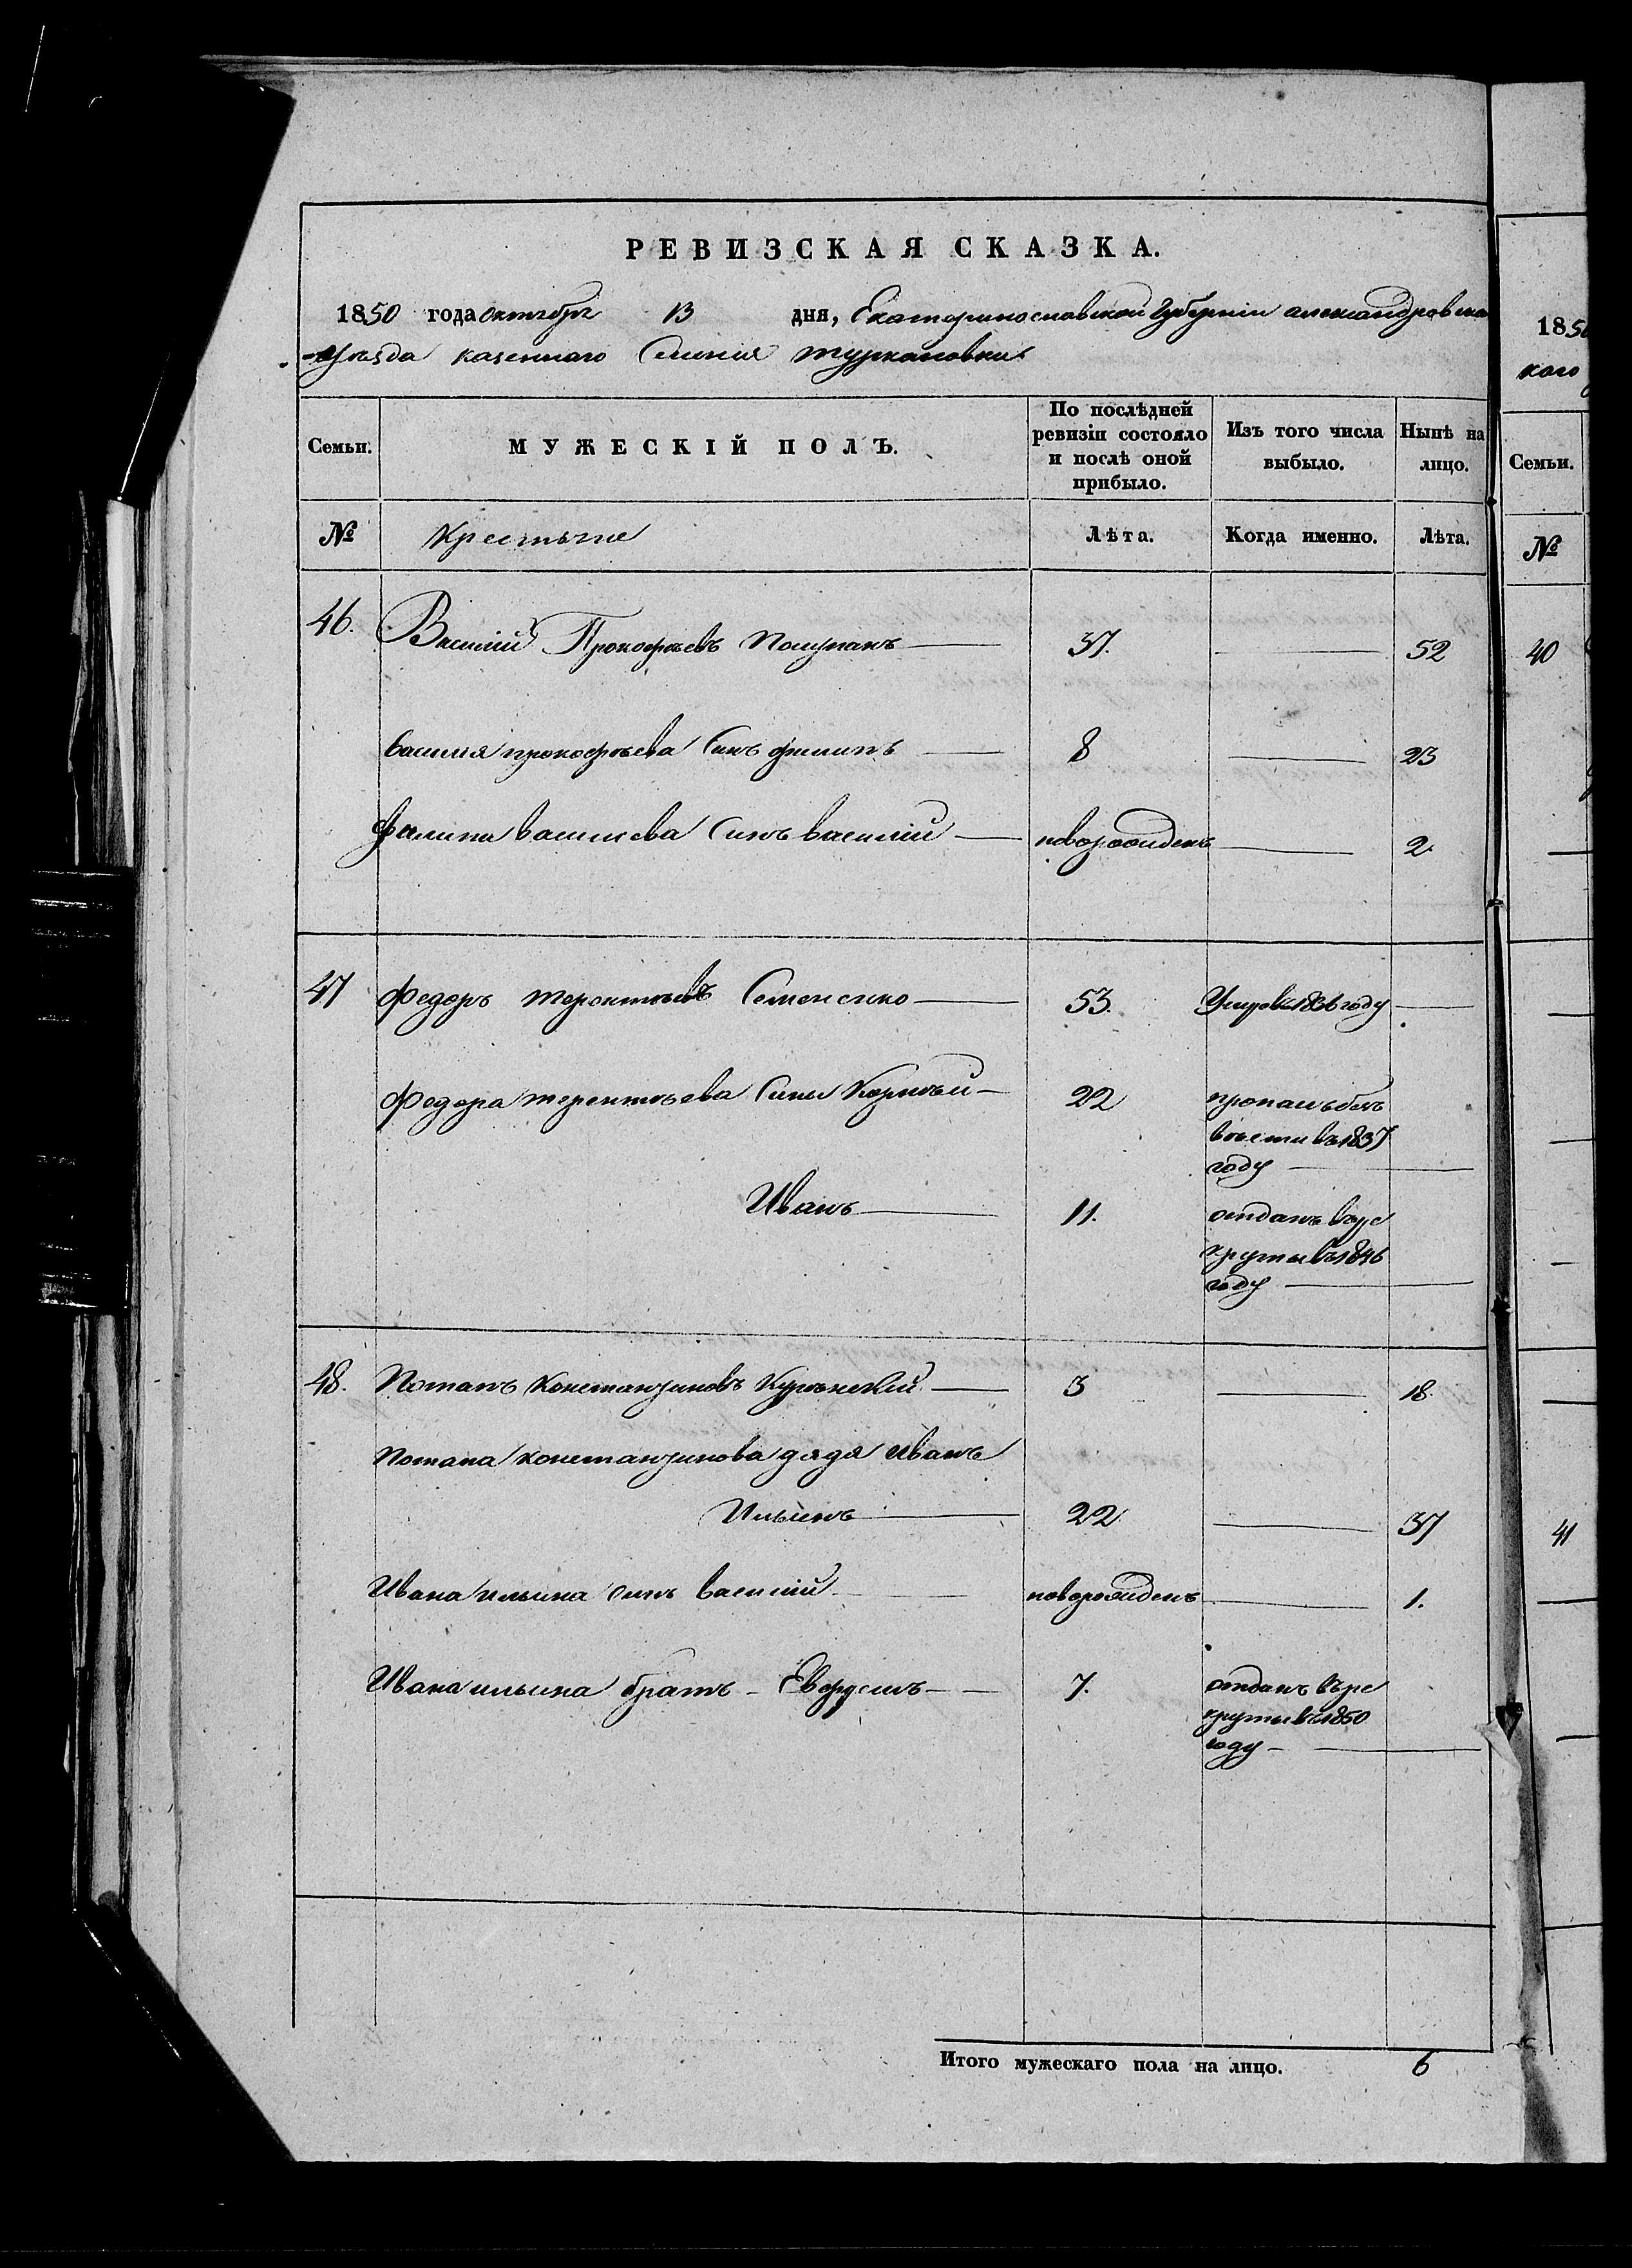 РЕВИЗСКАЯ СКАЗКА.
1850 года октября 13 дня, Екатеринославской Губернии александровска
уѣзда казеннаго Селения туркановки
Семьи.
МУЖЕСКІЙ ПОЛЪ.
По послѣдней
ревизіи состояло
и послѣ оной
прибыло.
Изъ того числа
выбыло.
Нынѣ на
лицо.
№ Крестьяне Лѣта. Когда именно. Лѣта.
46. Василий Прокофьевъ 37. 52
василия прокофьева Синъ филипъ 8 23
филипа василиева Синъ василий новорожденъ 2
47 федоръ терентьевъ Семененко 53. Умре въ 1836 году
федора терентьева Сины Корней 22 пропалъ безъ
вѣсти въ 1837
году
Иванъ 11. отданъ въ ре
круты въ 1846
году
48. Потапъ Константиновъ 3 18.
Потапа константинова дядя иванъ
Ильинъ 22 37
Ивана ильина синъ василий новорожденъ 1.
Ивана ильина братъ 7. отданъ въ ре
круты въ 1850
году
Итого мужескаго пола на лицо. 6
185
каго
Семьи.
№
40
41